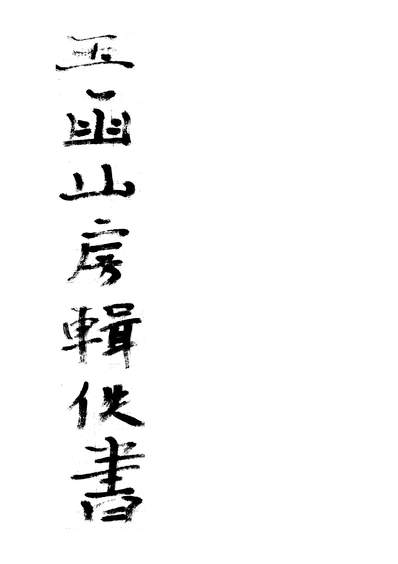 玉函山房輯佚書